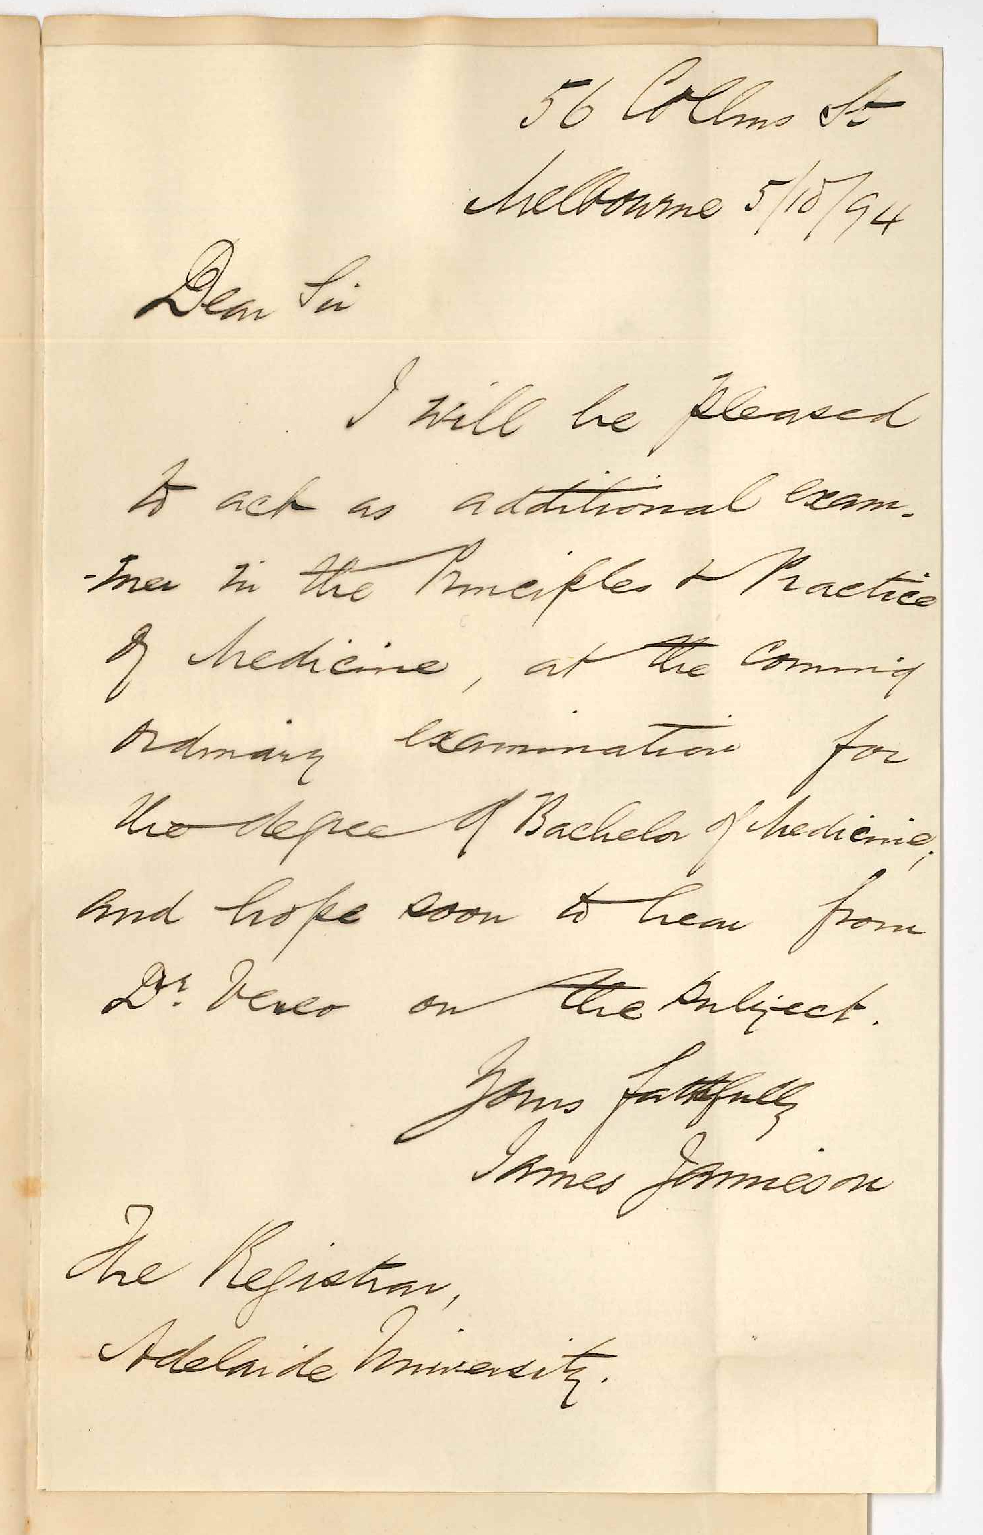 56 Collins St
Melbourne 5/10/94
Dear Sir
I will be pleased
to act as additional exam-
-iner in the Principles & Practice
of Medicine, at the coming
ordinary examination for
the degree of Bachelor of Medicine;
and hope soon to hear from
Dr. Verco on the subject.
Yours faithfully
James Jamieson
The Registrar,
Adelaide University.